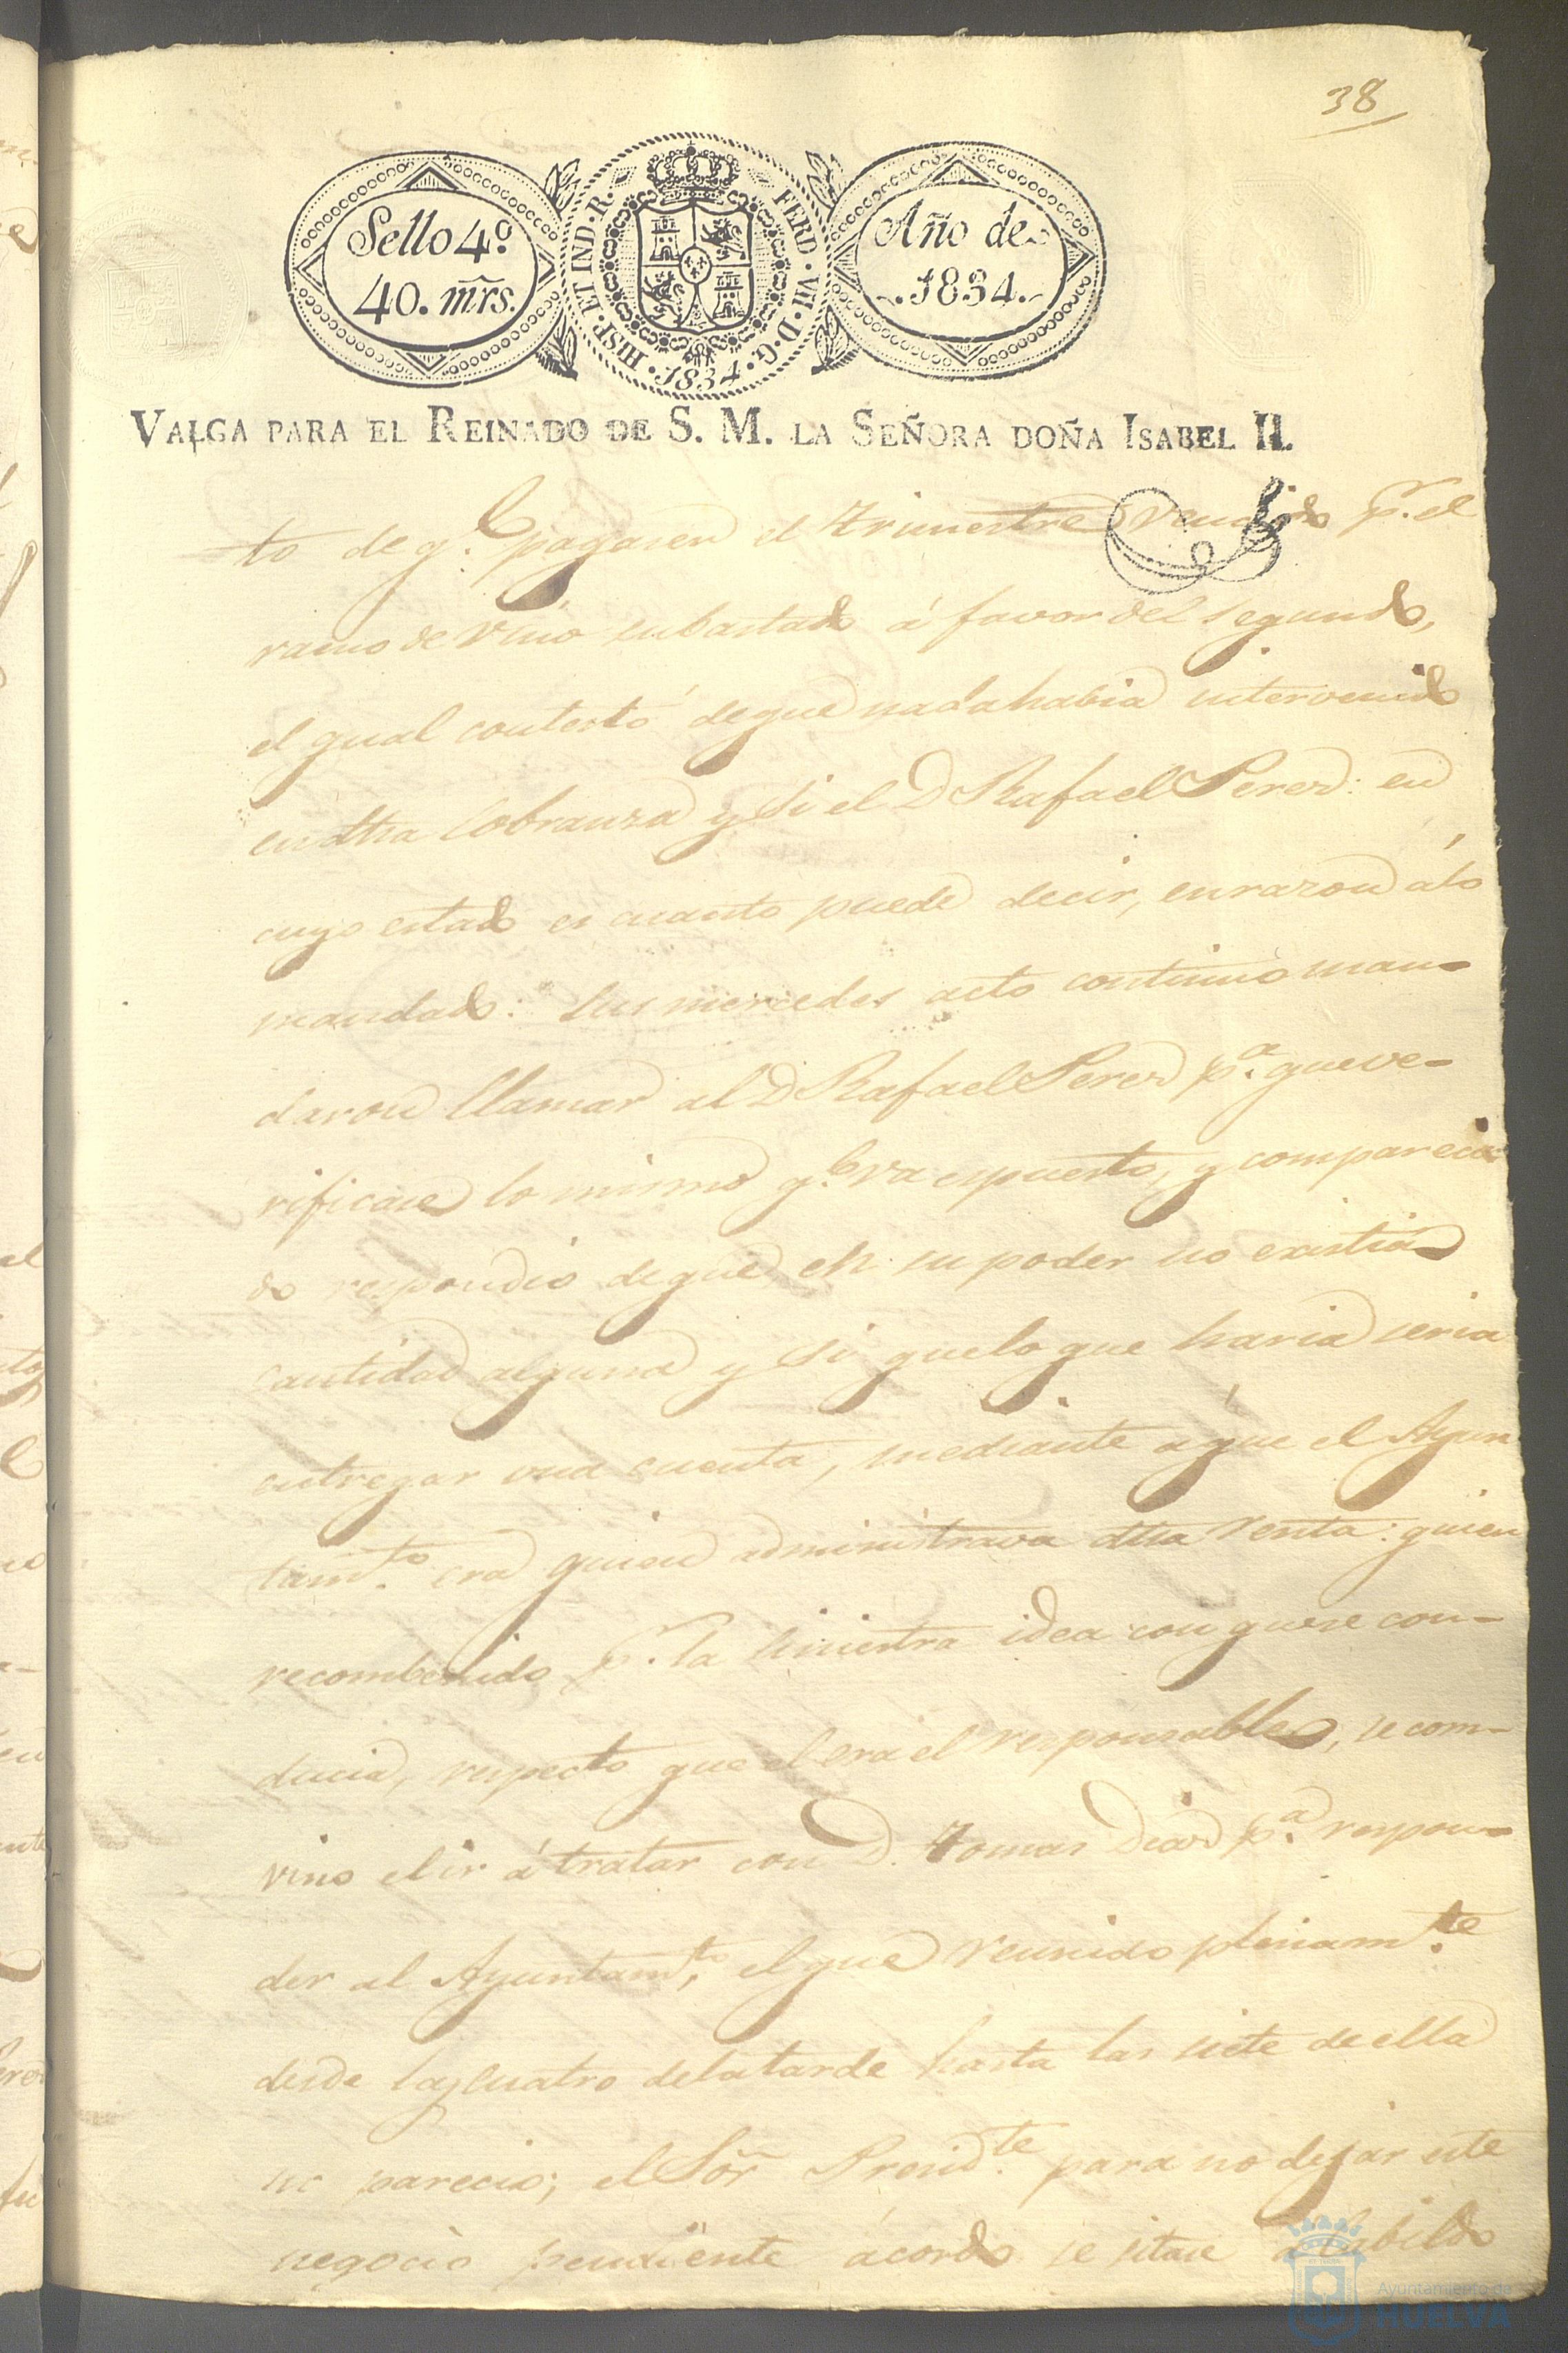 38
Sello 4º
40. mrs.
HISP. ET IND. R.
FERD. VII. D. G.
1834.
Año de
1834.
VALGA PARA EL REINADO DE S. M. LA SEÑORA DOÑA ISABEL II.
to de q.e pagasen el trimestre vencido p.r el
ramo de vino subastado á favor del segundo,
el qual contestó de que nada habia intervenido
en dha cobranza y si el D Rafael Perez: en
cuyo estado es cuanto puede decir, en razon á lo
mandado: sus mercedes acto continuo man-
daron llamar al D Rafael Perez p.a que ve-
rificase lo mismo q.e va espuesto, y compareci
do respondió de que en su poder no existia
cantidad alguna y si que lo que haria seria
entregar una cuenta, mediante á que el Ayun
tam.to era quien administrava dha renta: quien
recombenido p.r la siniestra idea con que se con-
ducia, respecto que el era el responsable, se com-
vino el ir á tratar con D. Tomas Diaz p.a respon-
der al Ayuntam.to, el que reunido plenam.te
desde las cuatro de la tarde hasta las siete de ella
no parecio; el Sor Presid.te para no dejar este
negocio pendiente ácordo se citase á Cabildo
Ayuntamiento de
HUELVA